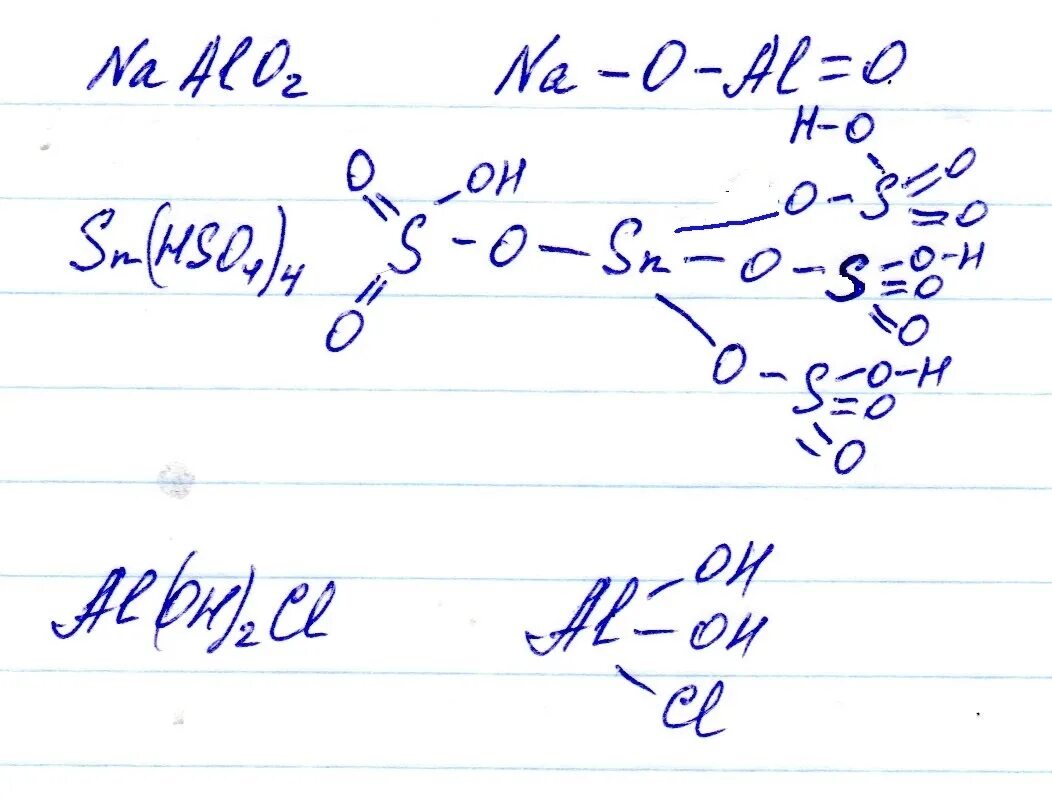 NaAlO2 Na-O-Al=O
H-O
O OH O-S=O
=O
Sn(HSO4)4 S-O-Sn-O-S-O-H
=O
O =O
O-S-O-H
=O
=O
Al(OH)2Cl Al-OH
-OH
Cl